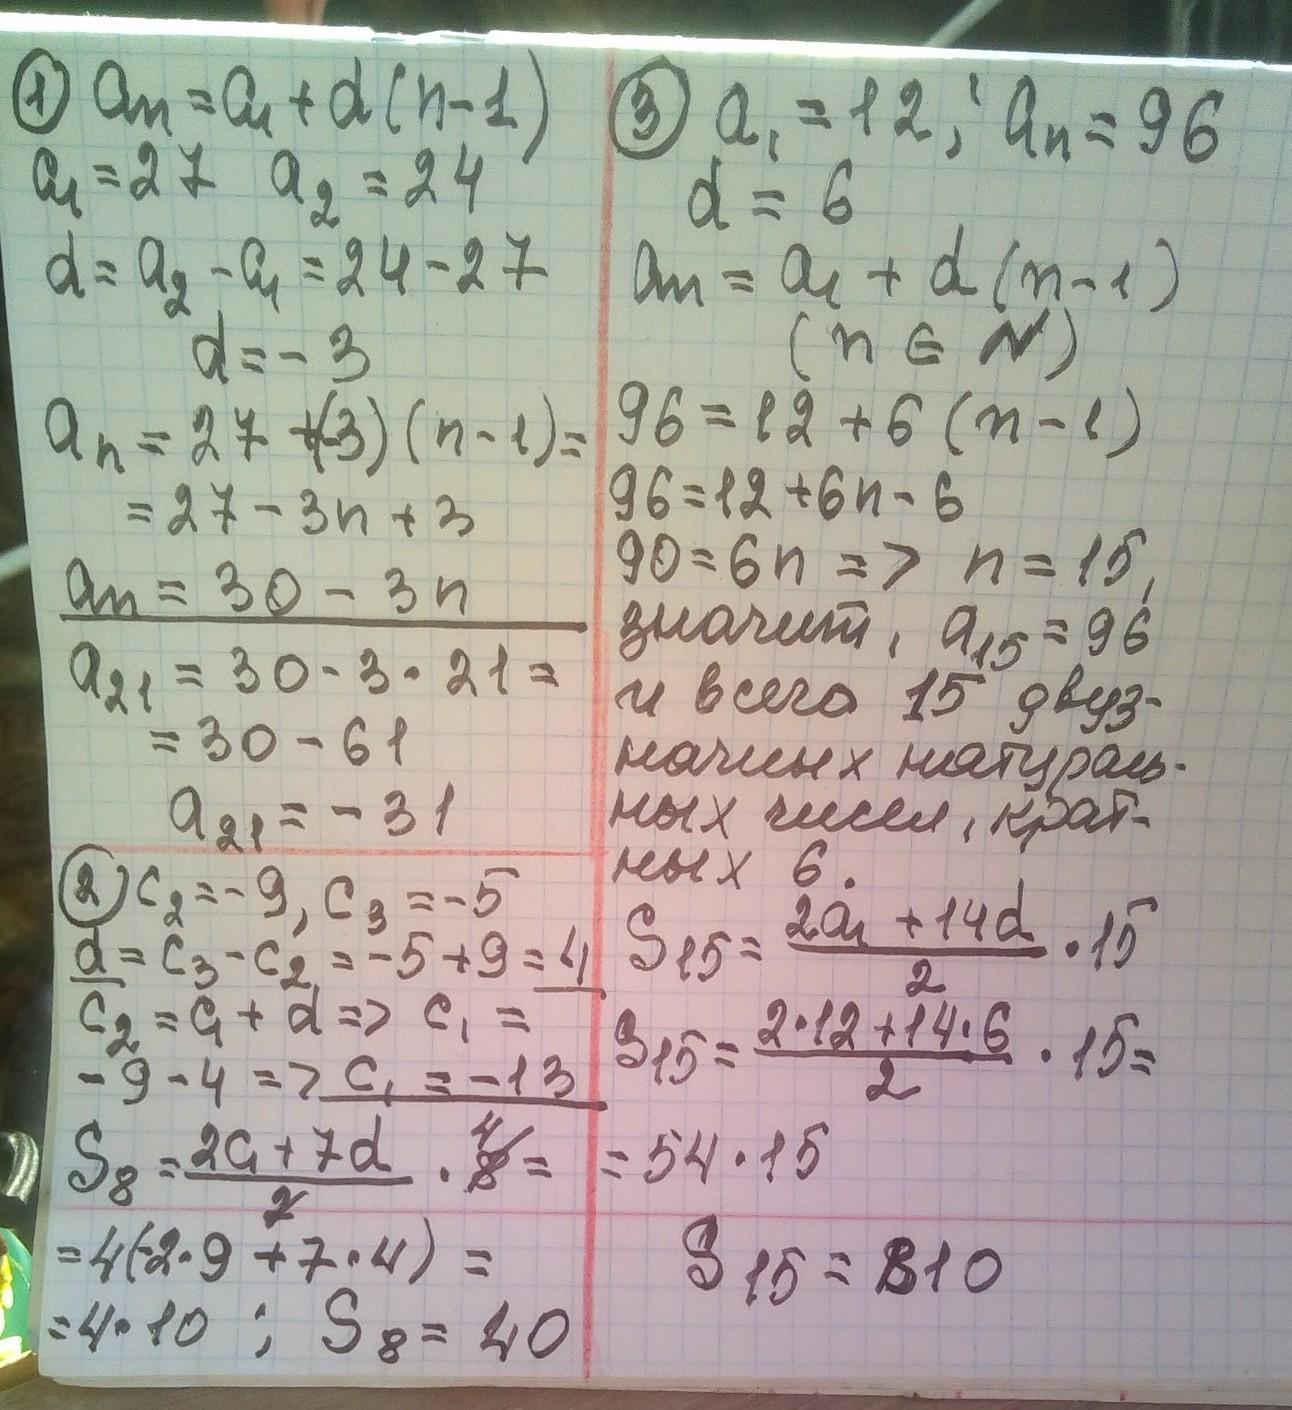 ① an = a₁ + d(n-1)
a₁ = 27 a₂ = 24
d = a₂ - a₁ = 24 - 27
d = - 3
an = 27 + (-3)(n-1) =
= 27 - 3n + 3
an = 30 - 3n
a₂₁ = 30 - 3 · 21 =
= 30 - 61
a₂₁ = - 31
② c₂ = - 9, c₃ = - 5
d = c₃ - c₂ = - 5 + 9 = 4
c₂ = c₁ + d => c₁ =
- 9 - 4 => c₁ = - 13
S₈ = (2c₁ + 7d)/2 · 8 =
4
= 4(-2·9 + 7·4) =
= 4·10 ; S₈ = 40
③ a₁ = 12; an = 96
d = 6
an = a₁ + d(n-1)
(n ∈ N)
96 = 12 + 6(n-1)
96 = 12 + 6n - 6
90 = 6n => n = 15,
значит, a₁₅ = 96
и всего 15 двуз-
начных натураль-
ных чисел, крат-
ных 6.
S₁₅ = (2a₁ + 14d)/2 · 15
S₁₅ = (2·12 + 14·6)/2 · 15 =
= 54 · 15
S₁₅ = 810